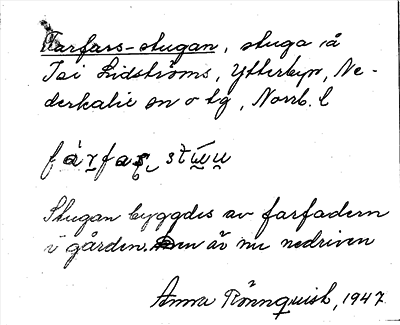 Farfars-stugan, stuga å
Isi Lidströms, Ytterbyn, Ne-
derkalix sn o tg, Norrb. l
Stugan byggdes av farfadern
i gården. Den är nu nedriven
Anna Rönnquist, 1947